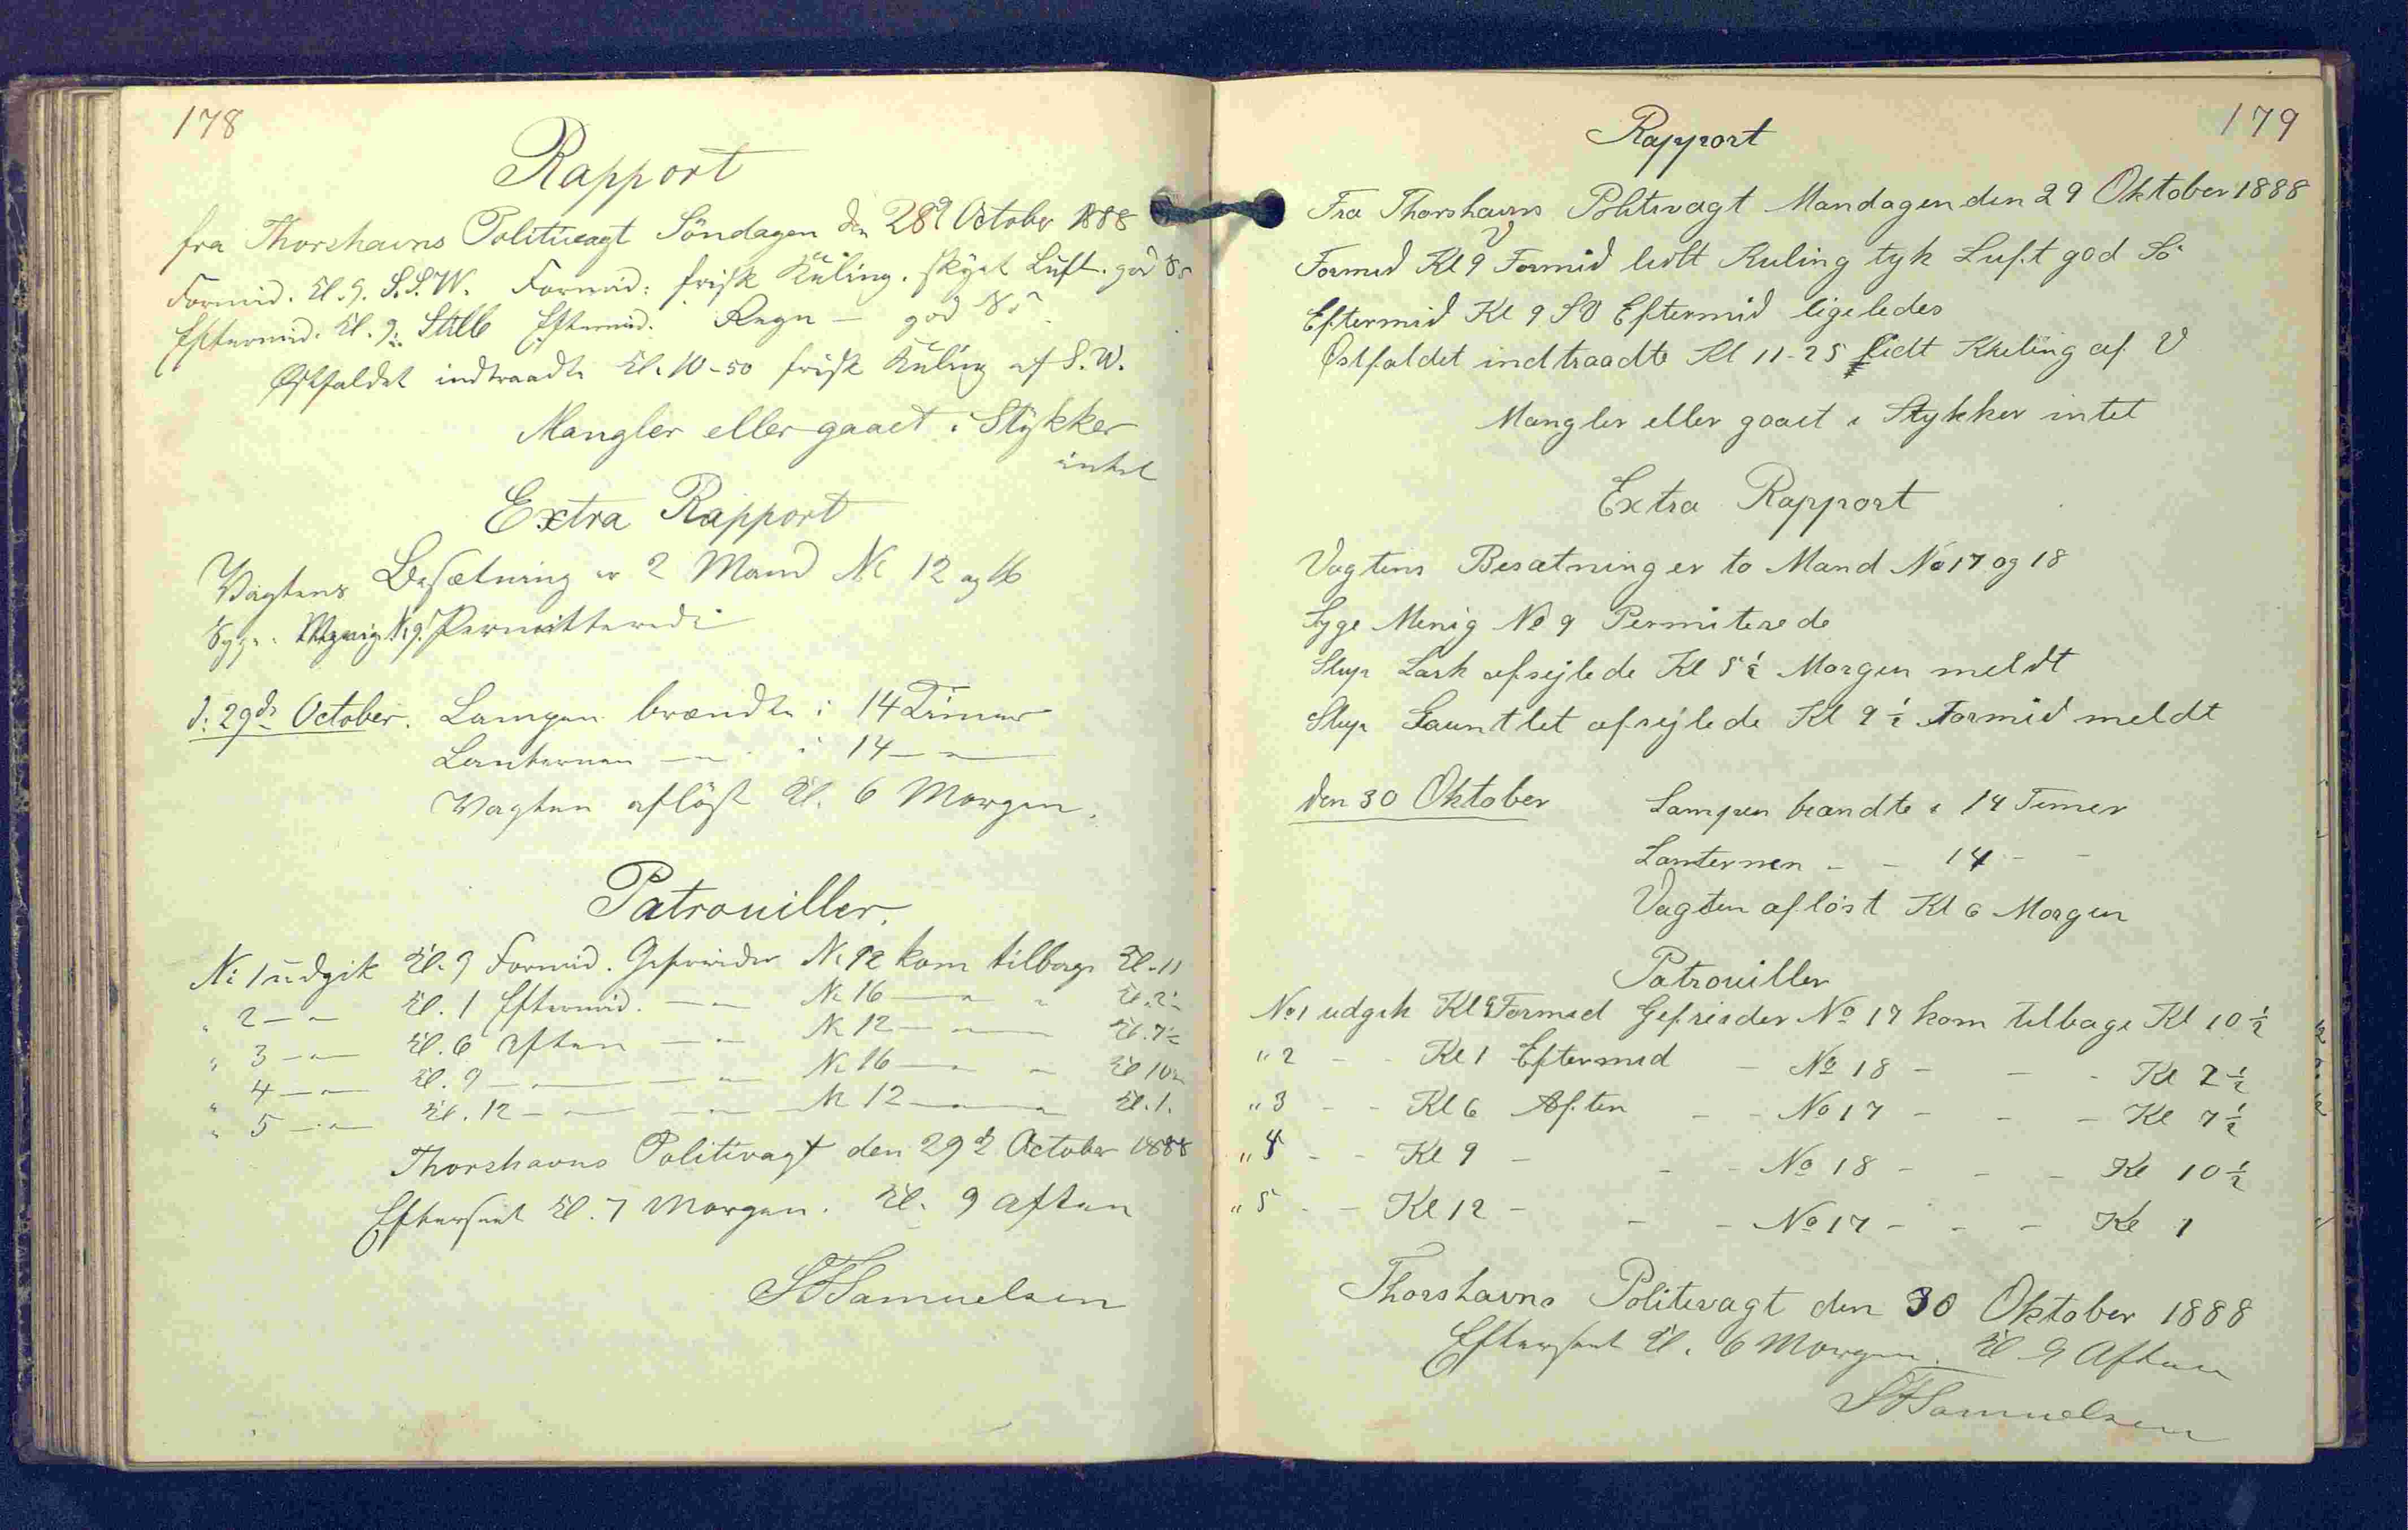 178
Rapport
fra Thorshavns Politivagt Söndagen den 28d October 1888
Formid. Kl. 9. S.S.W. Formid: frisk Kuling. skyet Luft. god Sö
Eftermid. Kl. 9. Stille Eftermid. Regn — god Sö
Østfaldet indtraadte Kl. 10-50 frisk Kuling af S.W.
Mangler eller gaaet i Stykker
intet
Extra Rapport
Vagtens Besætning er 2 Mand No 12 og 16
Syge. Menig No 9. Permitterede
d. 29de October. Lampen brændte i 14 Timer
Lanternen — " — i 14 — " —
Vagten aflöst Kl. 6 Morgen.
Patrouiller.
No 1 udgik Kl. 9 Formid. Gefreider No 12 kom tilbage Kl. 11
" 2 — " — Kl. 1 Eftermid. — " — No 16 — " — " Kl. 2½
" 3 — " — Kl. 6 Aften — " — No 12 — " — Kl. 7½
" 4 — " — Kl. 9 — " — — " — No 16 — " — " Kl 10½
" 5 — " — Kl. 12 — " — — " — No 12 — " — Kl. 1.
Thorshavns Politivagt den 29d October 1888
Efterseet Kl. 7 Morgen. Kl. 9 Aften
Samuelsen
179
Rapport
Fra Thorshavns Politivagt Mandagen den 29 Oktober 1888
Formid Kl 9 V Formid lidt Kuling tyk Luft god Sö
Eftermid Kl 9 SV Eftermid ligeledes
Østfaldet indtraadte Kl 11-25 lidt Kuling af V
Mangler eller gaaet i Stykker intet
Extra Rapport
Vagtens Besætning er to Mand No 17 og 18
Syge Menig No 9 Permiterede
Slup Lark afsejlede Kl 5½ Morgen meldt
Slup Gauntlet afsejlede Kl 9½ Formid meldt
den 30 Oktober Lampen brændte i 14 Timer
Lanternen - - 14 - -
Vagten aflöst Kl 6 Morgen
Patrouiller
No 1 udgik Kl 9 Formid Gefreider No 17 kom tilbage Kl 10½
" 2 - - Kl 1 Eftermid - No 18 - - - Kl 2½
" 3 - - Kl 6 Aften - - No 17 - - - Kl 7½
" 4 - - Kl 9 - - - No 18 - - - Kl 10½
" 5 - - Kl 12 - - - No 17 - - - Kl 1
Thorshavns Politivagt den 30 Oktober 1888
Efterseet Kl. 6 Morgen. Kl 9 Aften
Samuelsen